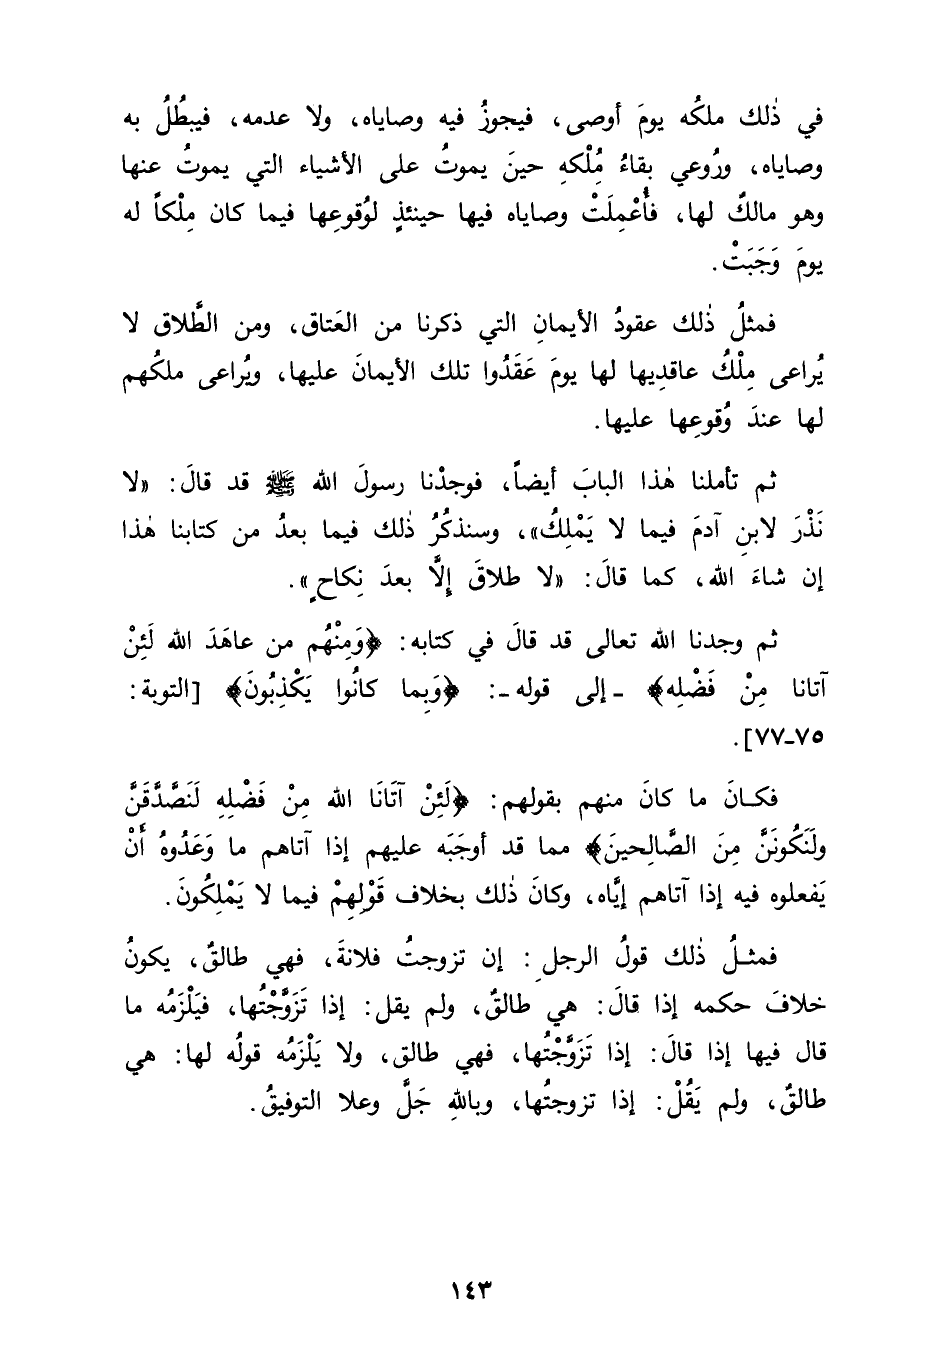 في ذٰلك ملكُه يومَ أوصى، فيجوزُ فيه وصاياه، ولا عدمه، فيبطُلُ به
وصاياه، ورُوعي بقاءُ مُلْكهِ حينَ يموتُ على الأشياء التي يموتُ عنها
وهو مالكٌ لها، فأُعْمِلَتْ وصاياه فيها حينئذٍ لوُقوعِها فيما كان مِلْكاً له
يومَ وَجَبَتْ.
فمثلُ ذٰلك عقودُ الأيمانِ التي ذكرنا من العَتاق، ومن الطَّلاق لا
يُراعى مِلْكُ عاقدِيها لها يومَ عَقَدُوا تلك الأيمانَ عليها، ويُراعى ملكُهم
لها عندَ وُقوعِها عليها.
ثم تأملنا هٰذا البابَ أيضاً، فوجدْنا رسولَ الله ﷺ قد قالَ: «لا
نَذْرَ لابنِ آدمَ فيما لا يَمْلِكُ»، وسنذكُرُ ذٰلك فيما بعدُ من كتابنا هٰذا
إن شاءَ الله، كما قالَ: «لا طلاقَ إلَّا بعدَ نِكاحٍ».
ثم وجدنا الله تعالى قد قالَ في كتابه: ﴿وَمِنْهُم من عاهَدَ الله لَئِنْ
آتانا مِنْ فَضْلِه﴾ ـ إلى قوله ـ: ﴿وَبِما كانُوا يَكْذِبُونَ﴾ [التوبة:
٧٥ـ٧٧].
فكـانَ ما كانَ منهم بقولهم: ﴿لَئِنْ آتَانَا الله مِنْ فَضْلِهِ لَنَصَّدَّقَنَّ
ولَنَكُونَنَّ مِنَ الصَّالِحينَ﴾ مما قد أوجَبَه عليهم إذا آتاهم ما وَعَدُوهُ أَنْ
يَفعلوه فيه إذا آتاهم إيَّاه، وكانَ ذٰلك بخلاف قَوْلِهِمْ فيما لا يَمْلِكُونَ.
فمثـلُ ذٰلك قولُ الرجلِ: إن تزوجتُ فلانةَ، فهي طالقٌ، يكونُ
خلافَ حكمه إذا قالَ: هي طالقٌ، ولم يقل: إذا تَزَوَّجْتُها، فيَلْزَمُه ما
قال فيها إذا قالَ: إذا تَزَوَّجْتُها، فهي طالق، ولا يَلْزَمُه قولُه لها: هي
طالقٌ، ولم يَقُلْ: إذا تزوجتُها، وباللهِ جَلَّ وعلا التوفيقُ.
١٤٣